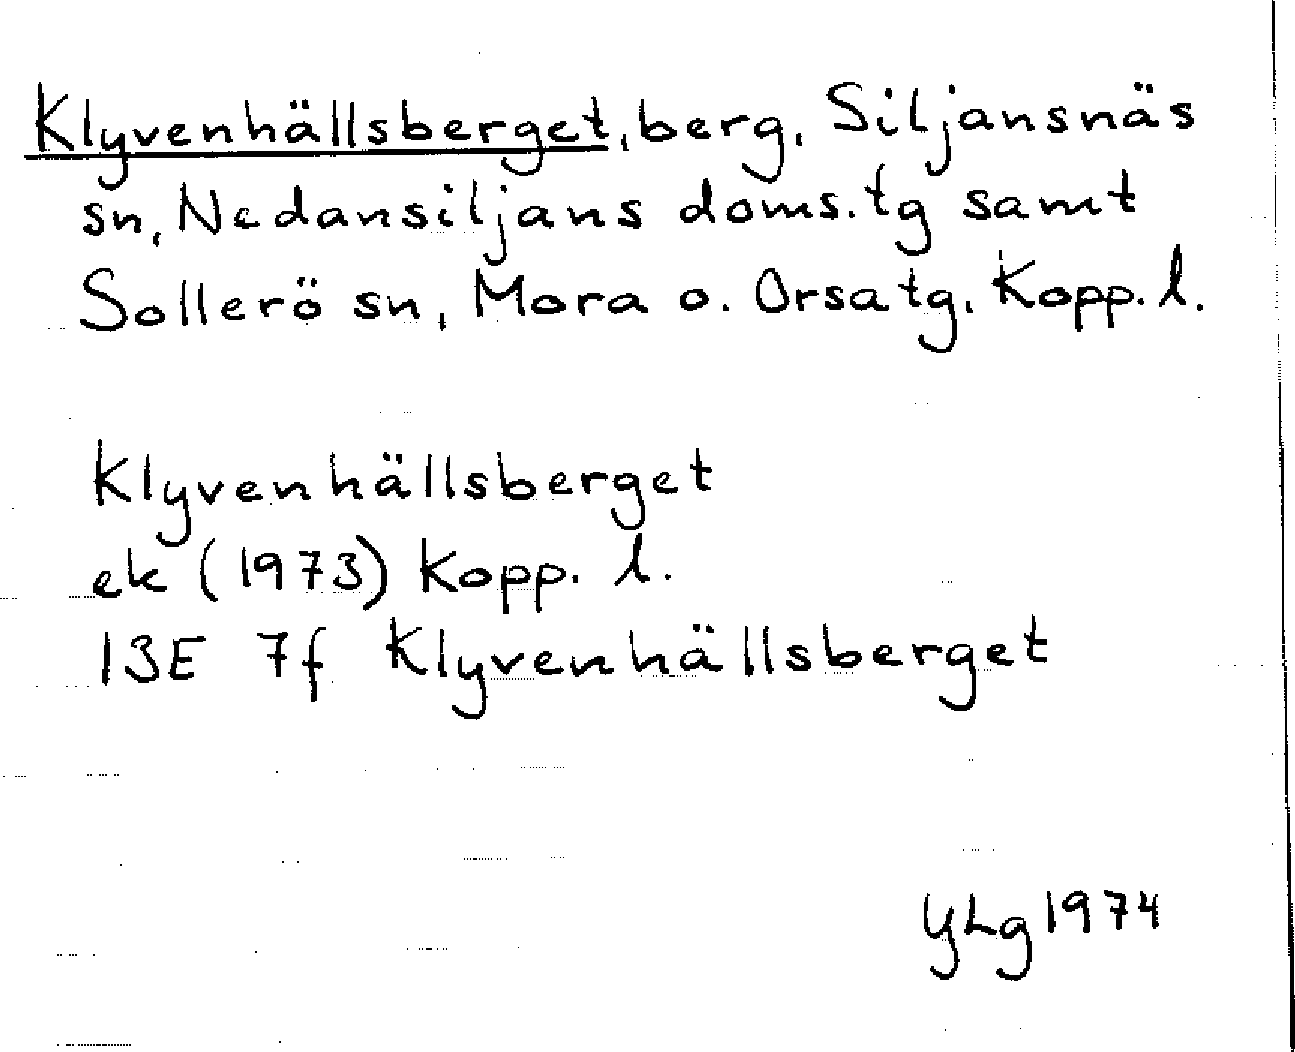 Klyvenhällsberget, berg, Siljansnäs
sn, Nedansiljans doms.tg samt
Sollerö sn, Mora o. Orsa tg, Kopp. l.
Klyvenhällsberget
ek (1973) Kopp. l.
13E 7f Klyvenhällsberget
YLg 1974